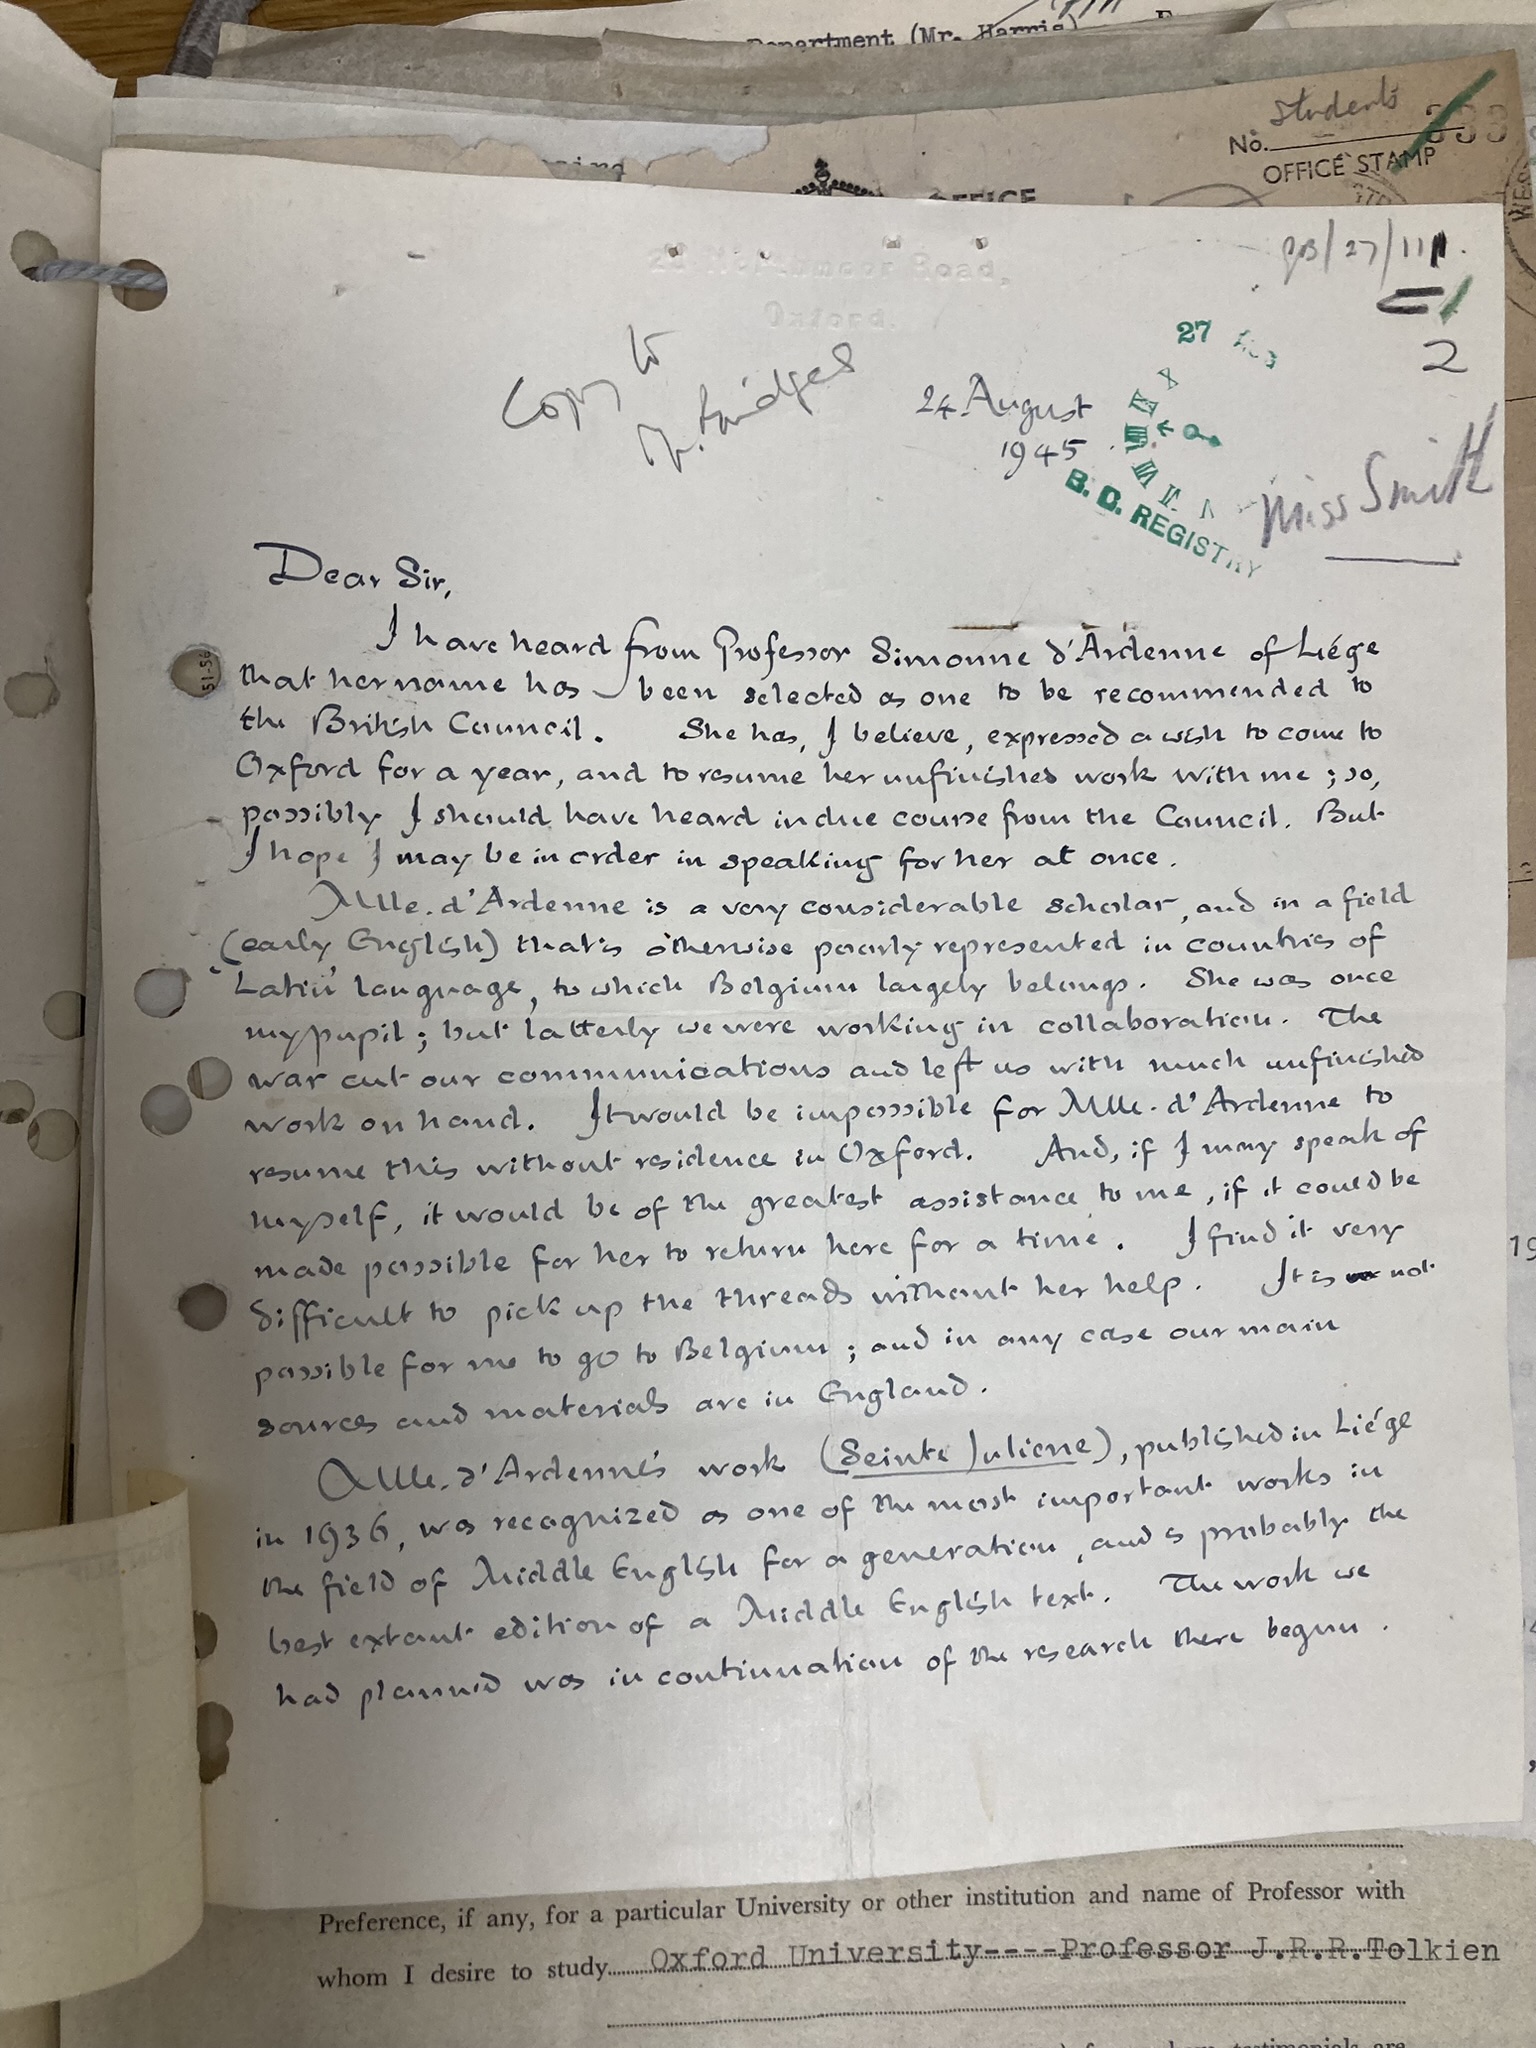 Department (Mr. Harris)
No. Students 333
OFFICE STAMP
OFFICE
Northmoor Road,
Oxford.
27 AUG
2
Copy to
Mr. Bridges
24 August
1945
B.C. REGISTRY
Miss Smith
Dear Sir,
I have heard from Professor Simonne d'Ardenne of Liége
that her name has been selected as one to be recommended to
the British Council. She has, I believe, expressed a wish to come to
Oxford for a year, and to resume her unfinished work with me; so,
possibly I should have heard in due course from the Council. But
I hope I may be in order in speaking for her at once.
Mlle. d'Ardenne is a very considerable scholar, and in a field
(early English) that is otherwise poorly represented in countries of
'Latin' language, to which Belgium largely belongs. She was once
my pupil; but latterly we were working in collaboration. The
war cut our communications and left us with much unfinished
work on hand. It would be impossible for Mlle. d'Ardenne to
resume this without residence in Oxford. And, if I may speak of
myself, it would be of the greatest assistance to me, if it could be
made possible for her to return here for a time. I find it very
difficult to pick up the threads without her help. It is not
possible for me to go to Belgium; and in any case our main
sources and materials are in England.
Mlle. d'Ardenne's work (Seinte Juliene), published in Liége
in 1936, was recognized as one of the most important works in
the field of Middle English for a generation, and is probably the
best extant edition of a Middle English text. The work we
had planned was in continuation of the research there begun.
Preference, if any, for a particular University or other institution and name of Professor with
whom I desire to study Oxford University----Professor J.R.R.Tolkien